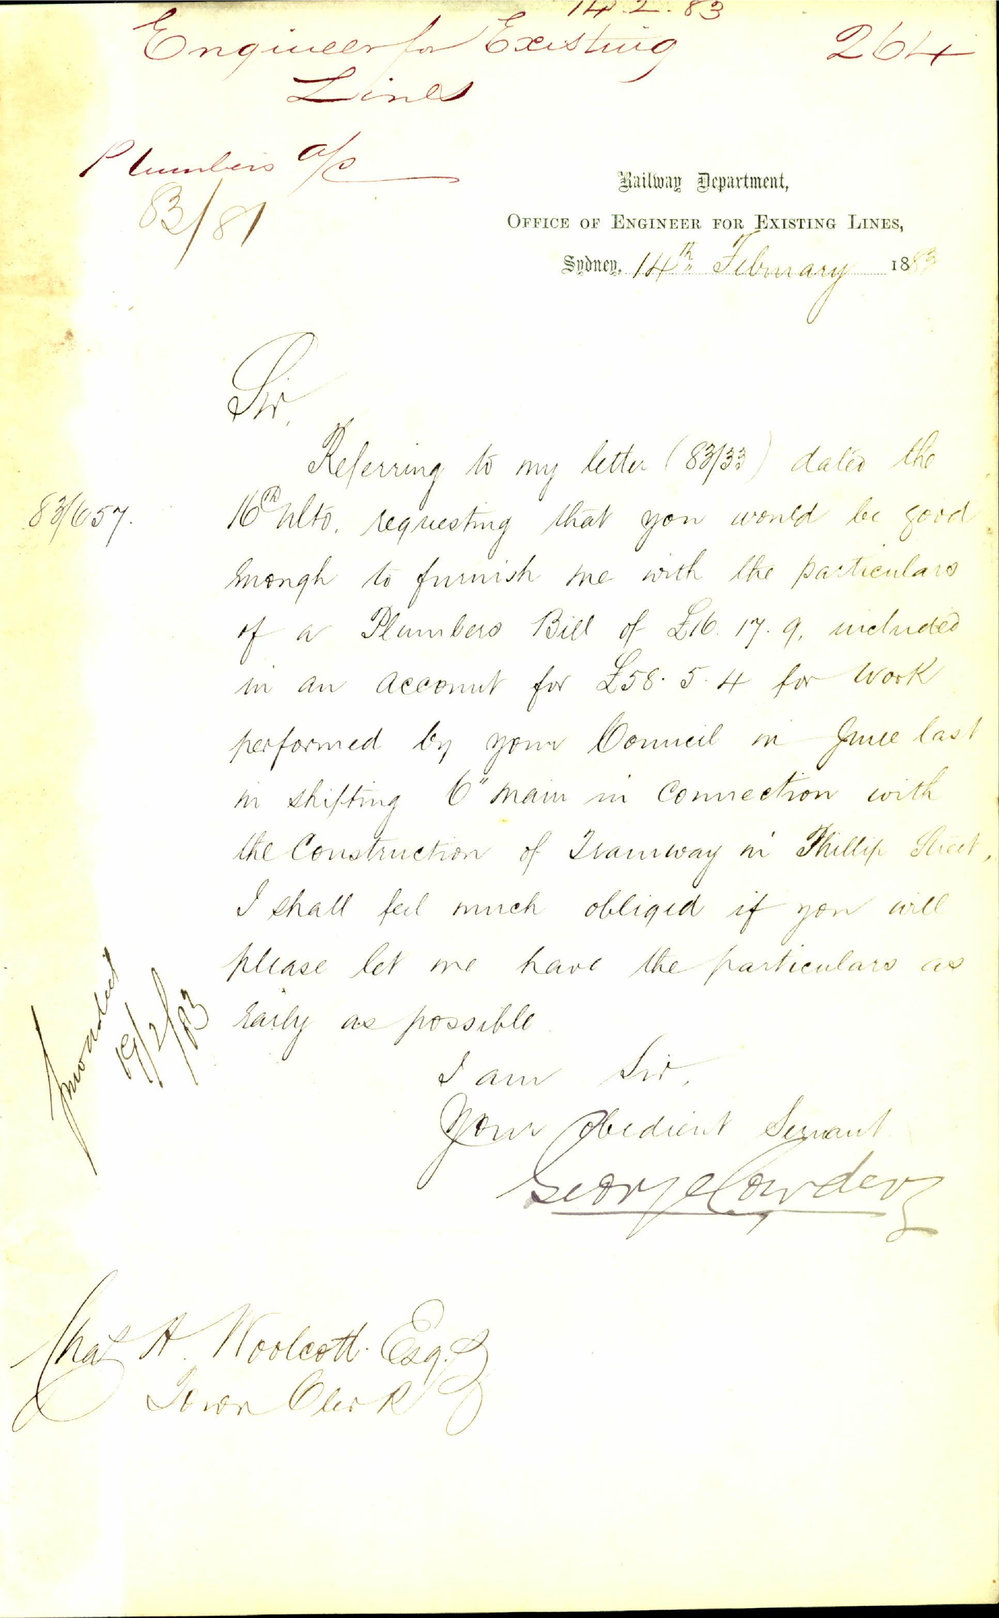 14.2.83
Engineer for Existing 264
Lines
Plumbers a/c
83/81
Railway Department,
OFFICE OF ENGINEER FOR EXISTING LINES,
Sydney, 14th February 1883
Sir,
Referring to my letter (83/33) dated the
83/657.
16th Ulto. requesting that you would be good
enough to furnish me with the particulars
of a Plumbers Bill of £16.17.9. included
in an account for £58.5.4 for work
performed by your Council in June last
in shifting 6" main in connection with
the Construction of Tramway in Phillip Street,
I shall feel much obliged if you will
please let me have the particulars as
early as possible
19/2/83
I am Sir,
Your Obedient Servant
George Cowdery
Chas H. Woolcott Esq.
Town Clerk